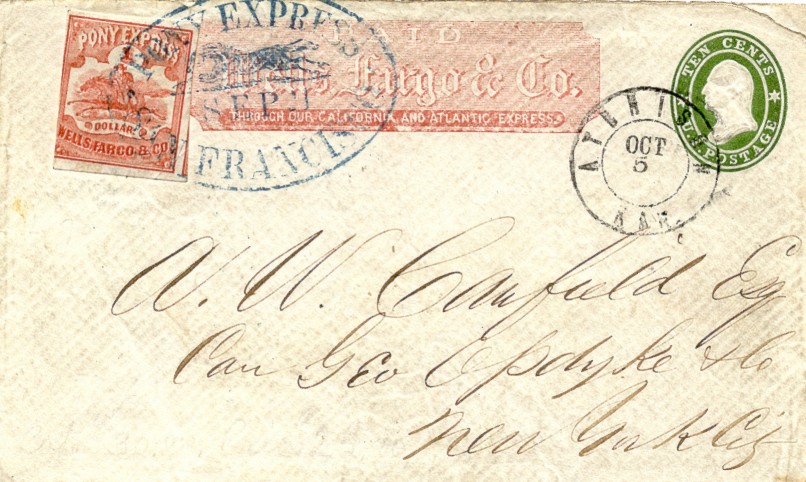 PONY EXPRESS
DOLLAR
WELLS, FARGO & CO
PONY EXPRESS
SEP.
SAN FRANCISCO
PAID
Wells, Fargo & Co.
THROUGH OUR CALIFORNIA AND ATLANTIC EXPRESS.
ATCHISON
OCT
5
KAN.
TEN CENTS
U.S. POSTAGE
W. W. Canfield Esq
Care Geo Opdyke & Co
New York City